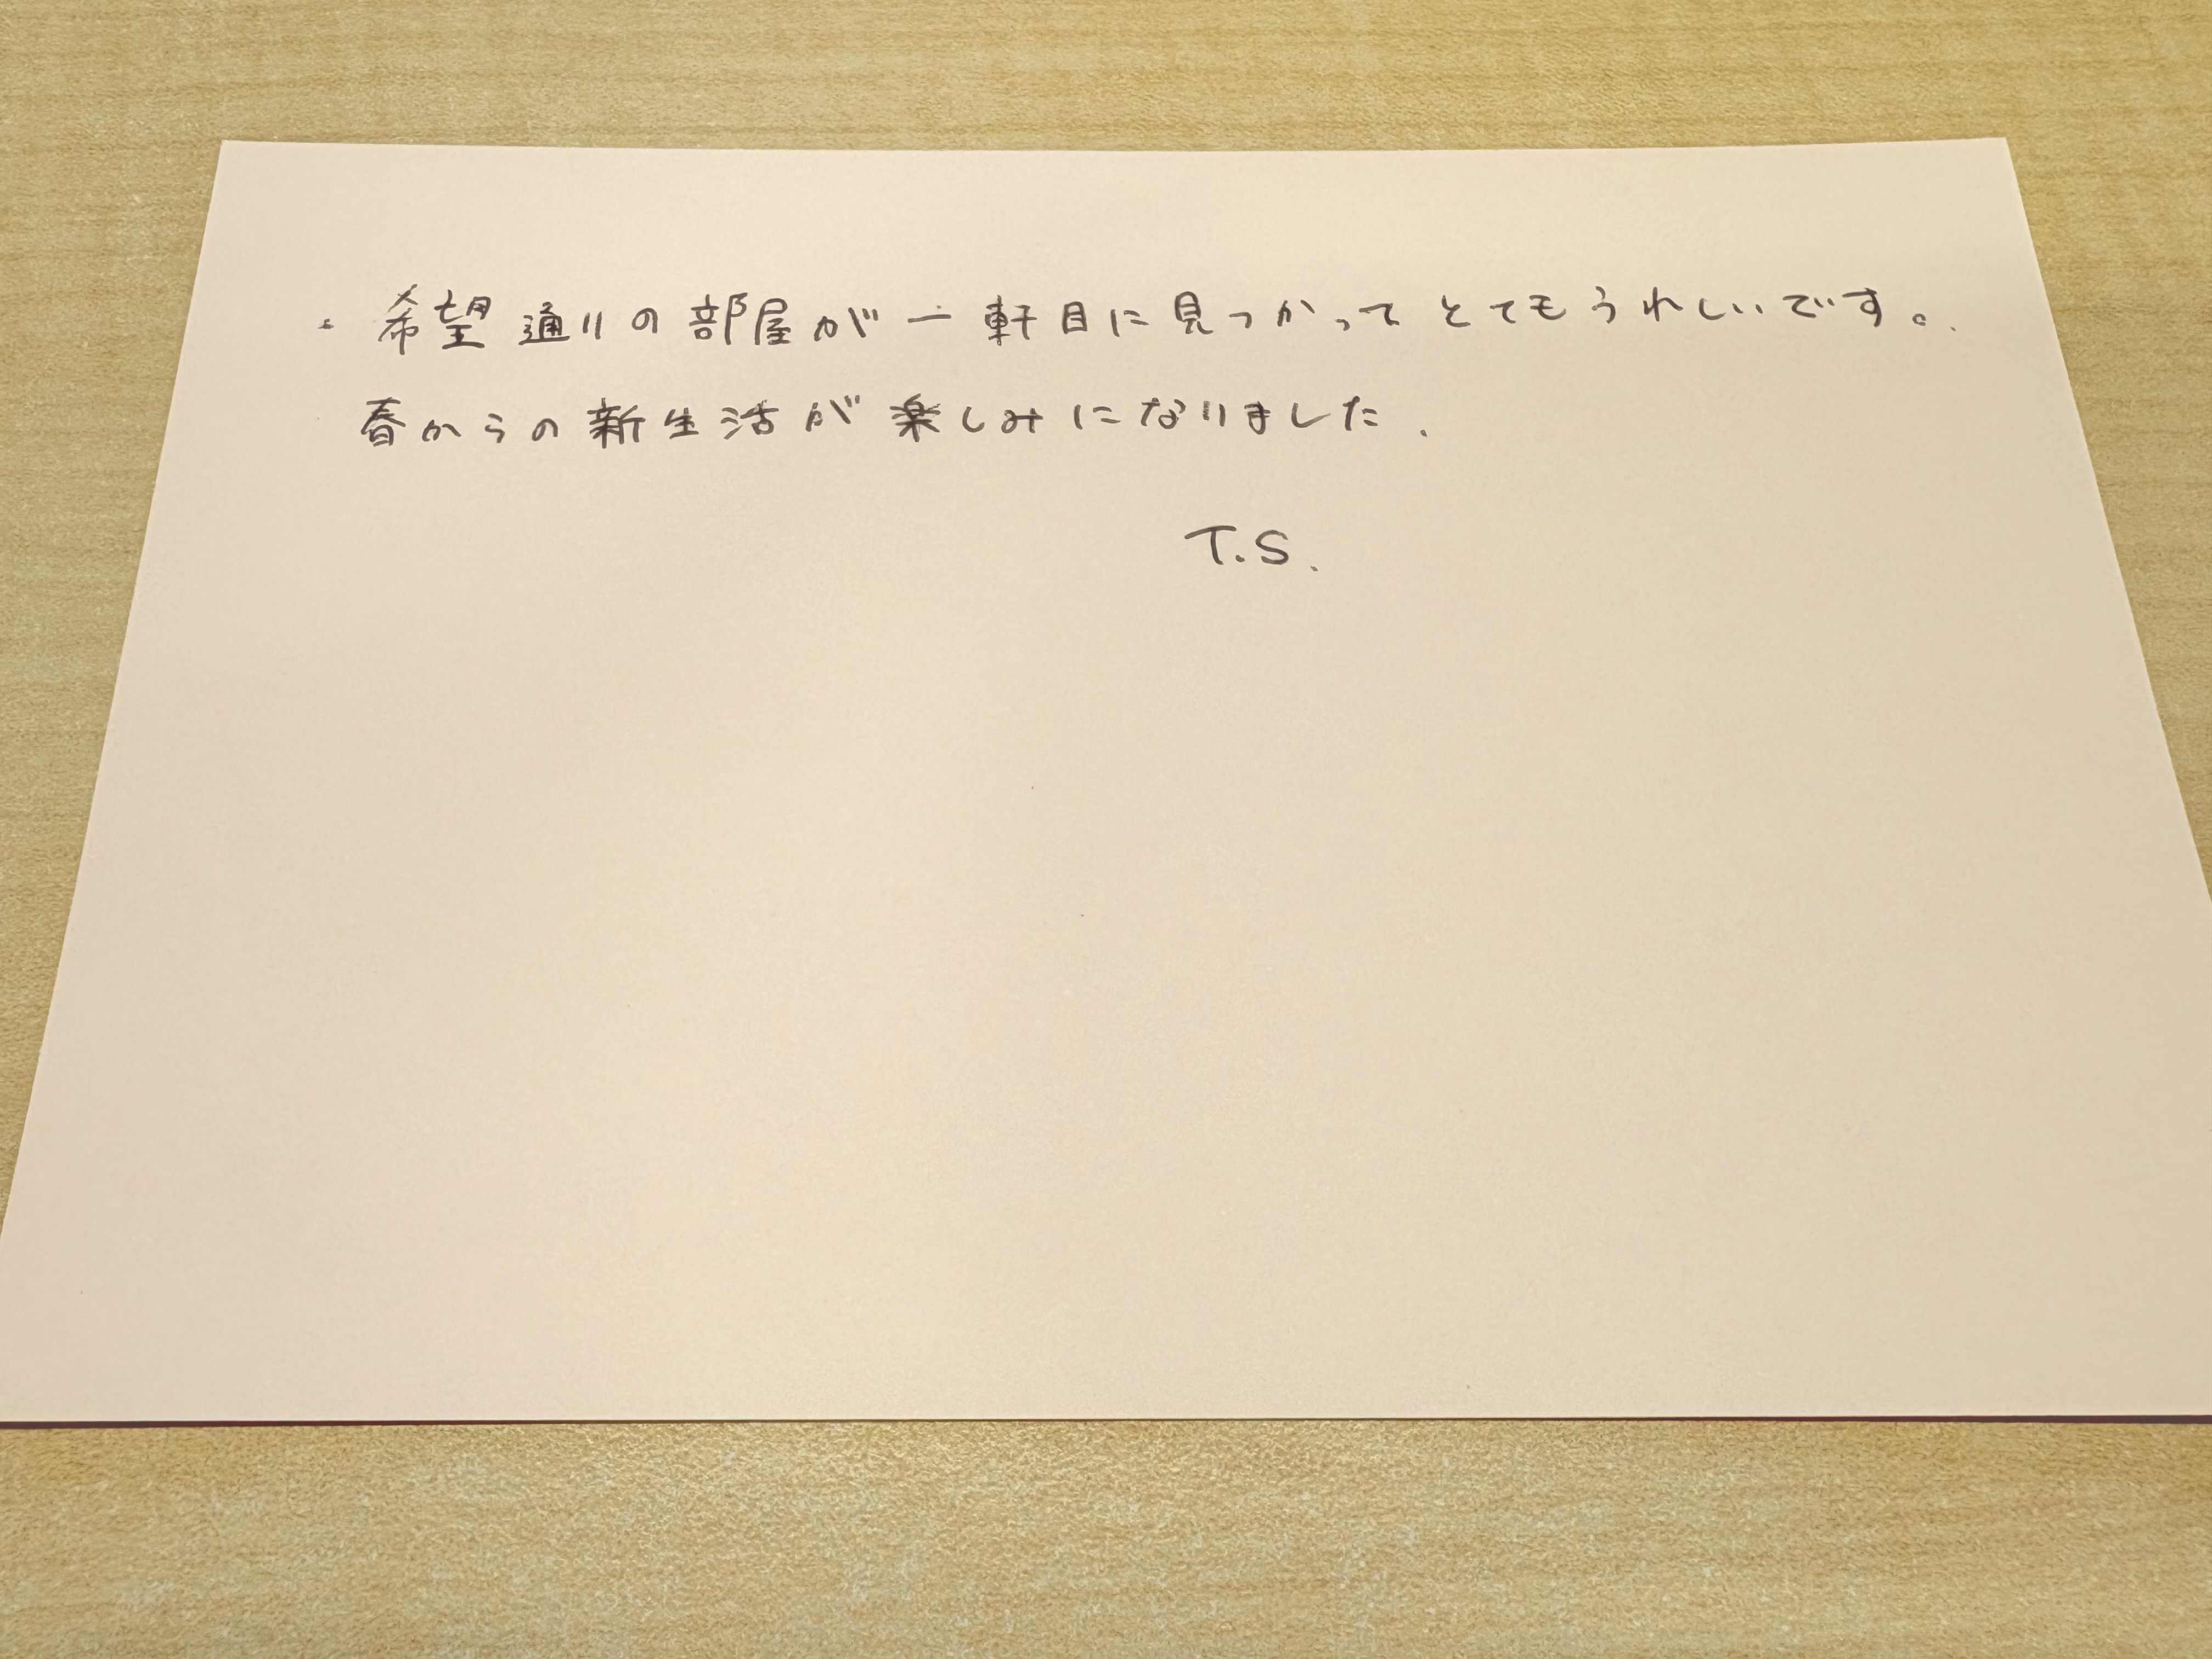 ・希望通りの部屋が一軒目に見つかってとてもうれしいです。
春からの新生活が楽しみになりました.
T.S.